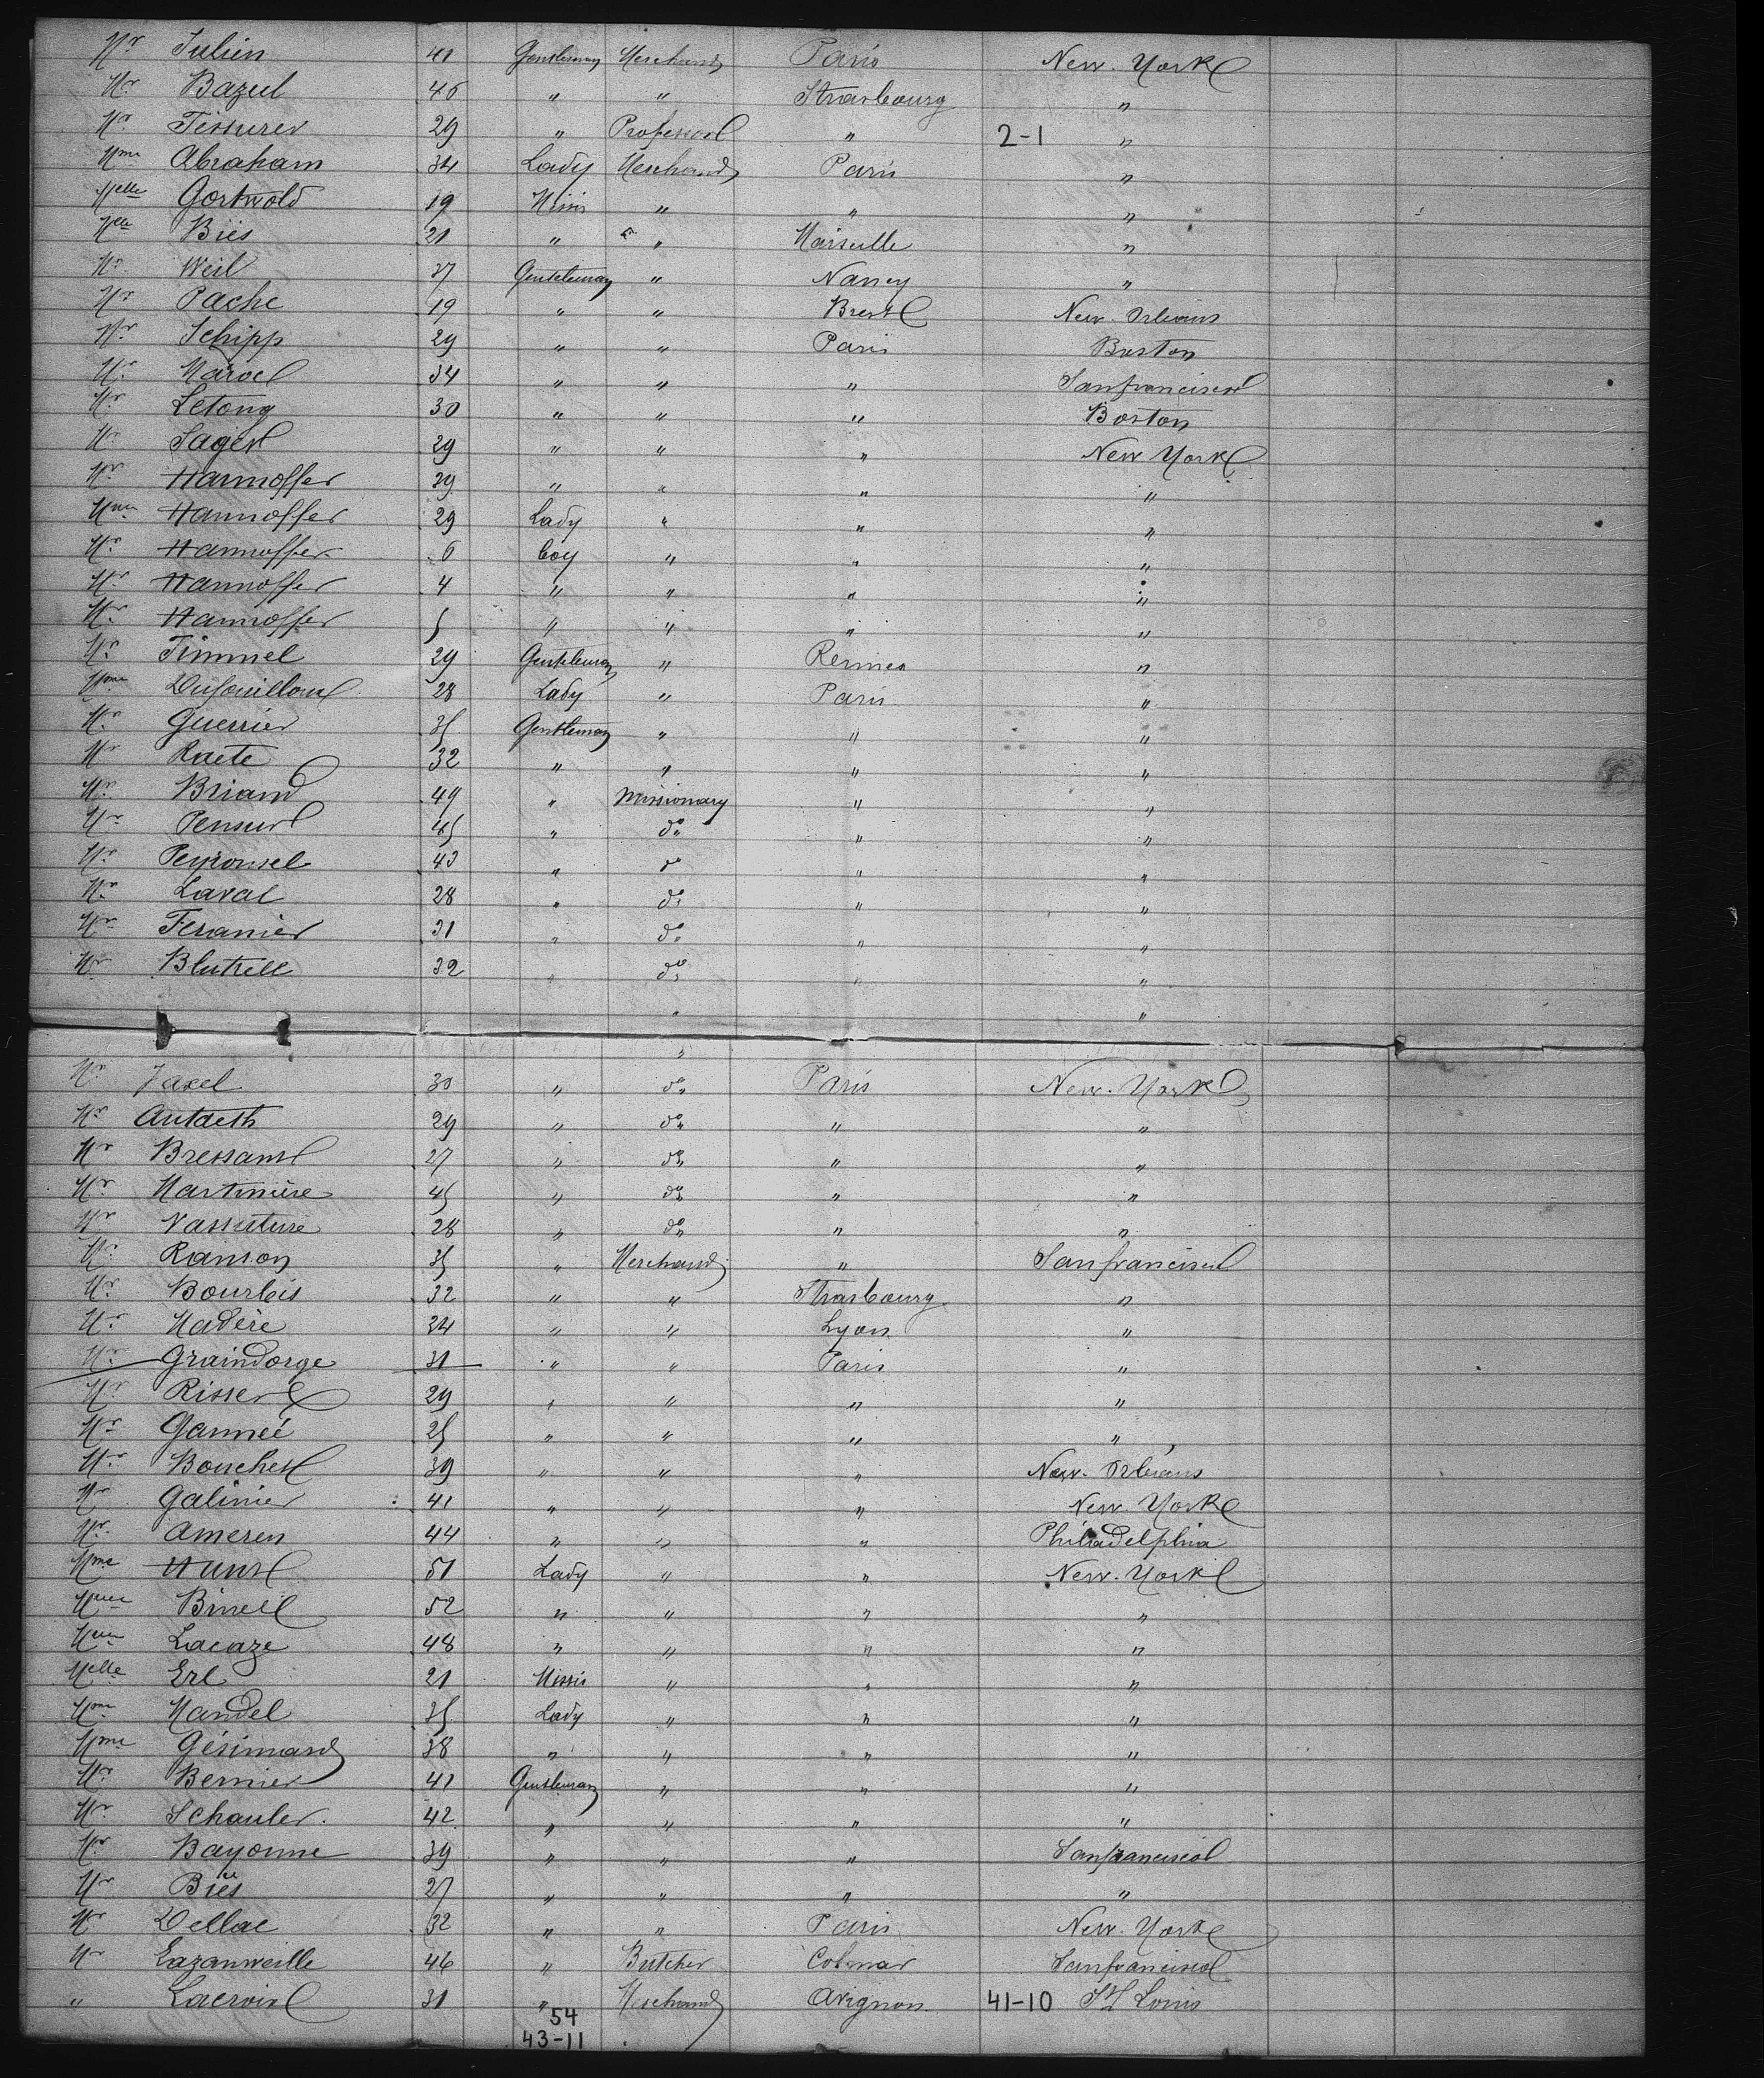 Mr Julien 41 Gentleman Merchand Paris New-York
Mr Bazul 46 " " Strasbourg "
Mr Tissurer 29 " Professor " 2-1 "
Mme Abraham 34 Lady Merchand Paris "
Melle Gortwold 19 Missis " " "
Melle Biès 21 " " Marseille "
Mr Weil 37 Gentleman " Nancy "
Mr Pache 19 " " Brest New-Orleans
Mr Schipp 29 " " Paris Boston
Mr Marvel 34 " " " Sanfrancisco
Mr Letong 30 " " " Boston
Mr Sager 29 " " " New York
Mr Hannoffer 39 " " " "
Mme Hannoffer 29 Lady " " "
Mr Hannoffer 6 boy " " "
Mr Hannoffer 4 " " " "
Mr Hannoffer 5 " " " "
Mr Timmel 29 Gentleman " Rennes "
Mme 28 Lady " Paris "
Mr Guerrier 35 Gentleman " " "
Mr Raete 32 " " " "
Mr Briand 49 " Missionary " "
Mr 45 " do " "
Mr Peyronnel 43 " do " "
Mr Laval 28 " do " "
Mr Feranier 31 " do " "
Mr Blutell 32 " do " "
" "
"
Mr Jaxel 30 " do Paris New-York
Mr Autaeth 29 " do " "
Mr Bressant 27 " do " "
Mr Martinière 45 " do " "
Mr 28 " do " "
Mr Ranson 35 " Merchand " Sanfrancisco
Mr Bourbis 32 " " Strasbourg "
Mr Madère 34 " " Lyon "
Mr Graindorge 31 " " Paris "
Mr Risser 29 " " " "
Mr Ganneé 25 " " " "
Mr Boucher 39 " " " New-Orleans
Mr Galinier 41 " " " New York
Mr Ameren 44 " " " Philadelphia
Mme Hunt 51 Lady " " New-York
Mme Binell 52 " " " "
Mme Lacaze 48 " " " "
Melle Erl 21 Missis " " "
Mme Mandel 35 Lady " " "
Mme Gésimard 38 " " " "
Mr Bernier 41 Gentleman " " "
Mr Schauler 42 " " " "
Mr Bayonne 39 " " " Sanfrancisco
Mr Biès 27 " " " "
Mr Dellac 32 " " Paris New-York
Mr Lazanweille 46 " Butcher Colmar Sanfrancisco
" Lacroix 31 " Merchand Avignon 41-10 St Louis
54
43-11